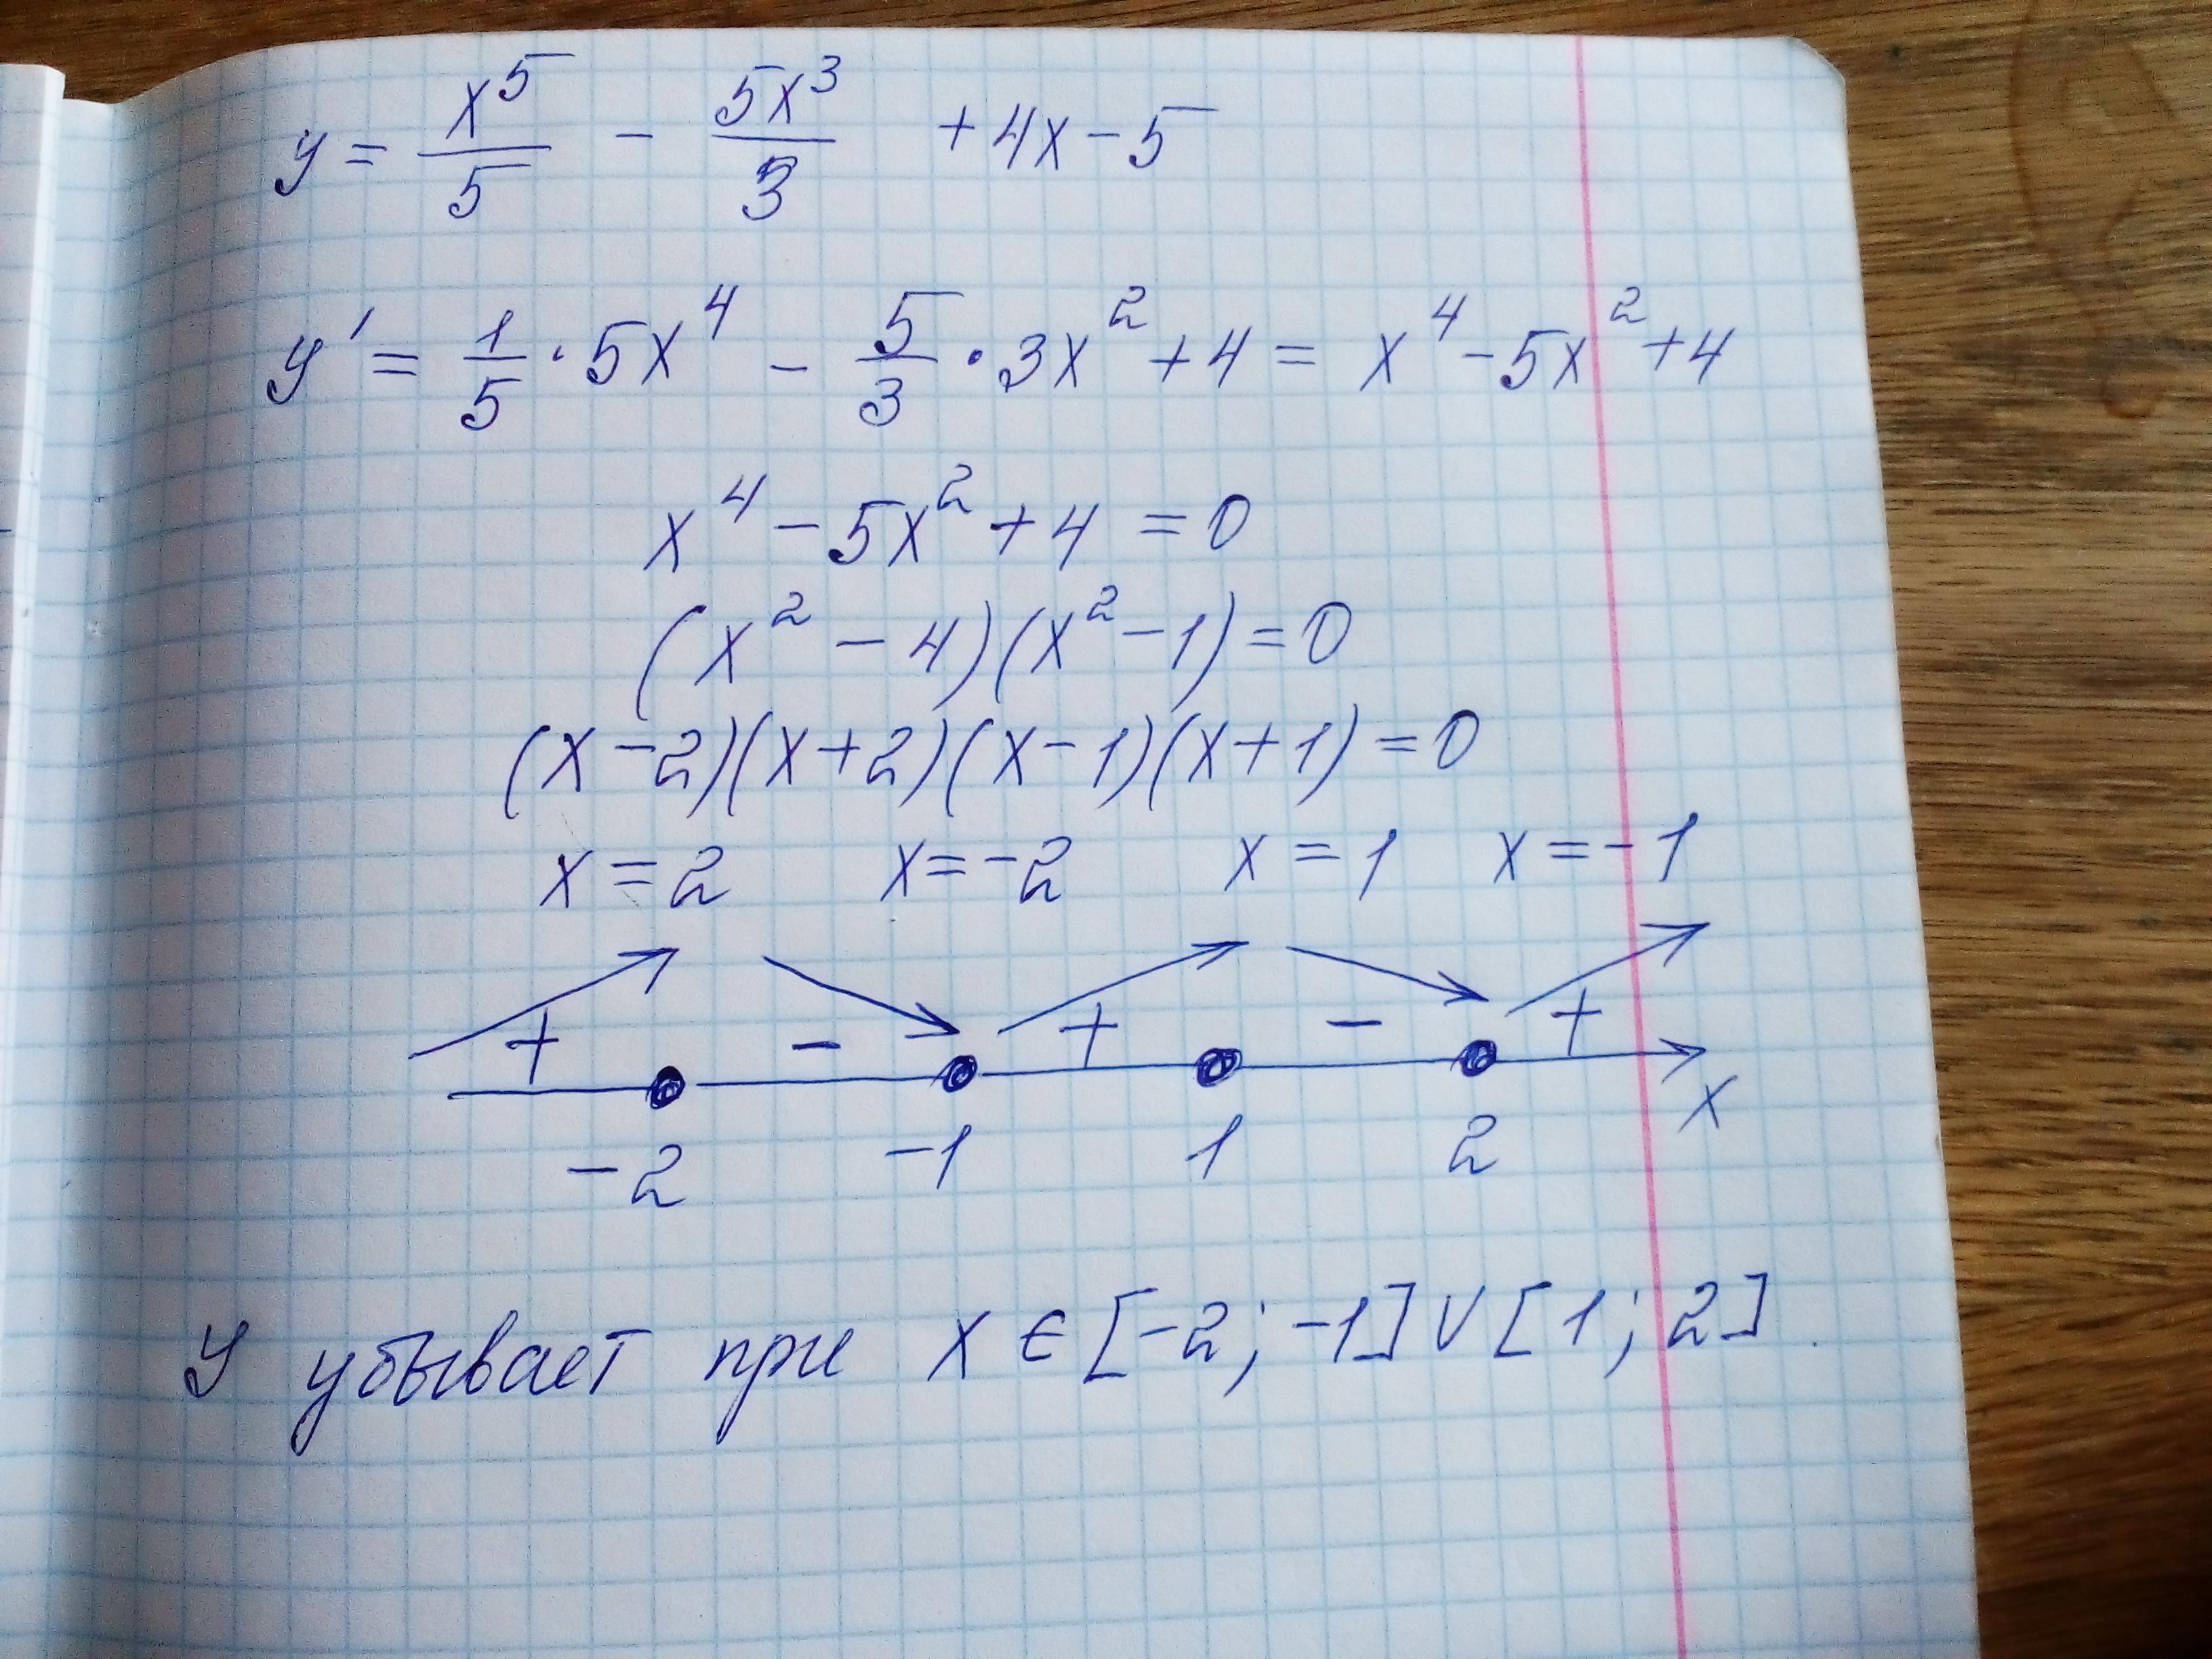 y = x^5/5 - 5x^3/3 + 4x - 5
y' = 1/5 · 5x^4 - 5/3 · 3x^2 + 4 = x^4 - 5x^2 + 4
x^4 - 5x^2 + 4 = 0
(x^2 - 4)(x^2 - 1) = 0
(x - 2)(x + 2)(x - 1)(x + 1) = 0
x = 2 x = -2 x = 1 x = -1
+ - + - +
x
-2 -1 1 2
y убывает при x ∈ [-2; -1] ∪ [1; 2].